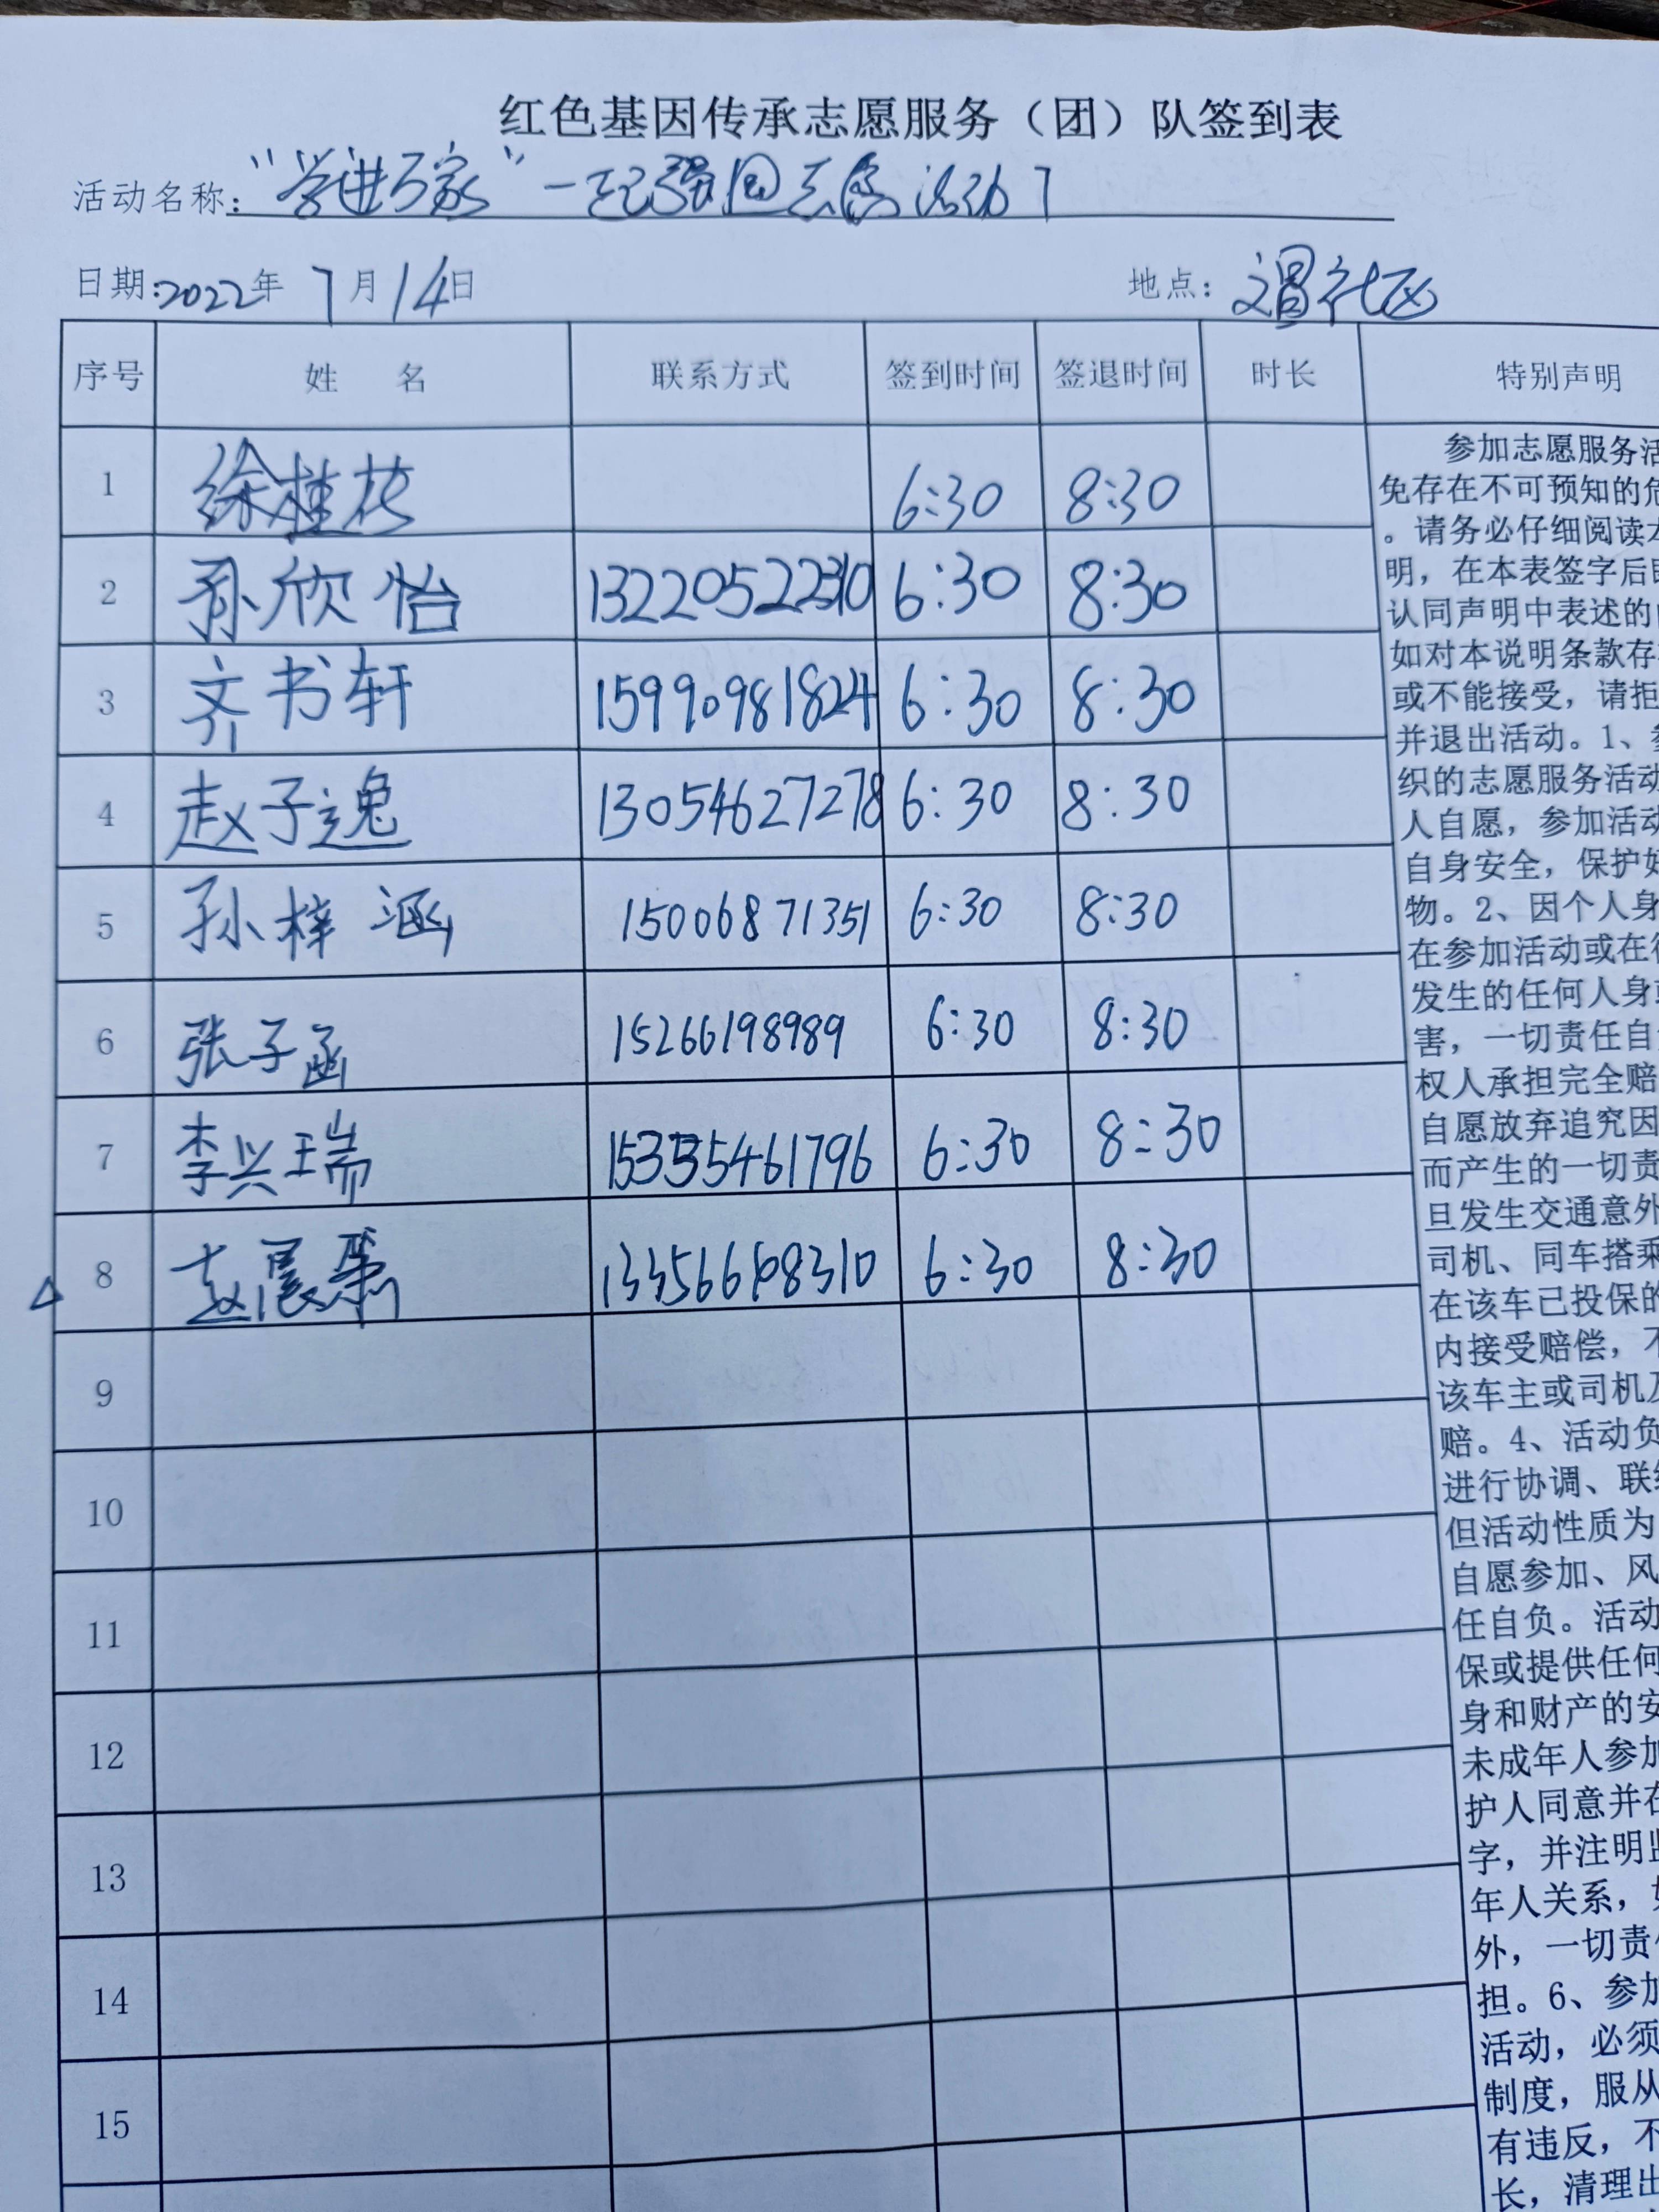 红色基因传承志愿服务（团）队签到表
活动名称："学进万家"一起强国志愿活动
日期:2022年7月14日 地点：文昌社区
序号 姓 名 联系方式 签到时间 签退时间 时长 特别声明
1 徐桂花 6:30 8:30
2 孙欣怡 6:30 8:30
3 齐书轩 15990981824 6:30 8:30
4 赵子逸 13054627278 6:30 8:30
5 孙梓涵 15006871351 6:30 8:30
6 张子函 15266198989 6:30 8:30
7 李兴瑞 6:30 8:30
8 赵晨 6:30 8:30
9
10
11
12
13
14
15
参加志愿服务活
免存在不可预知的危
。请务必仔细阅读本
明，在本表签字后即
认同声明中表述的内
如对本说明条款存
或不能接受，请拒
并退出活动。1、参
织的志愿服务活动
人自愿，参加活动
自身安全，保护好
物。2、因个人身
在参加活动或在往
发生的任何人身或
害，一切责任自
权人承担完全赔
自愿放弃追究因
而产生的一切责
旦发生交通意外
司机、同车搭乘
在该车已投保的
内接受赔偿，不
该车主或司机及
赔。4、活动负
进行协调、联络
但活动性质为
自愿参加、风
任自负。活动
保或提供任何
身和财产的安
未成年人参加
护人同意并在
字，并注明监
年人关系，如
外，一切责任
担。6、参加
活动，必须
制度，服从
有违反，不
长，清理出